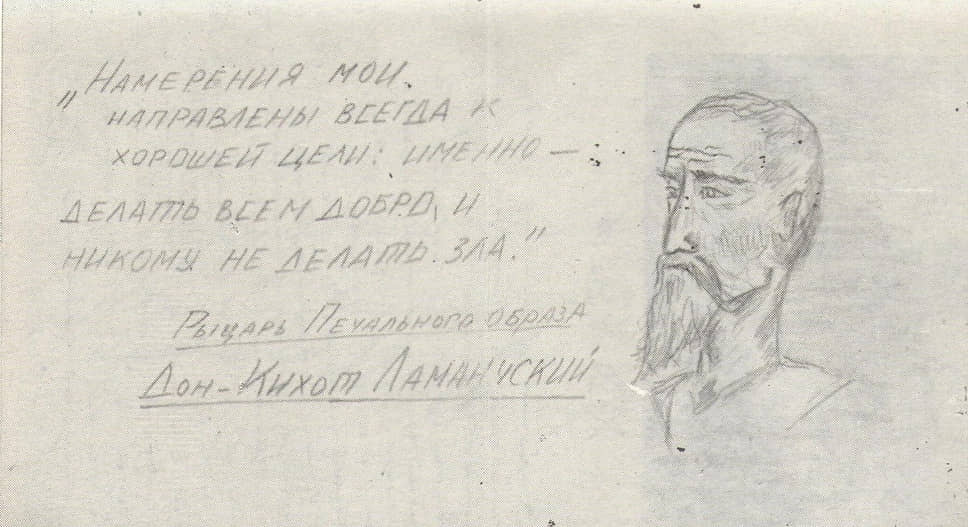 „Намерения мои
направлены всегда к
хорошей цели: именно —
делать всем добро, и
никому не делать зла."
Рыцарь Печального образа
Дон-Кихот Ламанчский